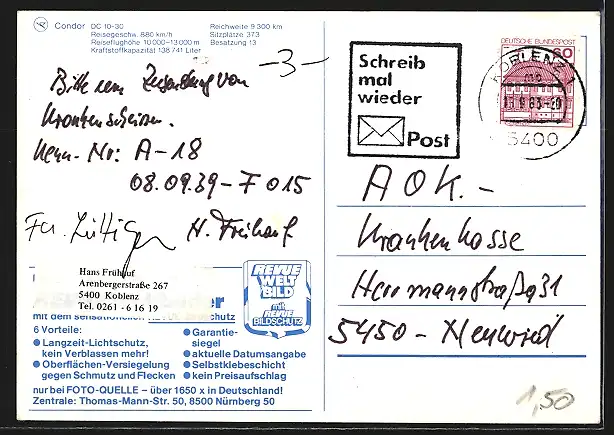 Condor DC 10-30
Reisegeschw. 880 km/h
Reiseflughöhe 10 000–13 000 m
Kraftstoffkapazität 138 741 Liter
Reichweite 9.300 km
Sitzplätze 373
Besatzung 13
-3-
Bitte um Zusendung von
Krankenscheinen.
Kenn-Nr: A-18
08.09.39-F 015
H. Frühauf
Hans Frühauf
Arenbergerstraße 267
5400 Koblenz
Tel. 0261 - 6 16 19
REVUE
WELT
BILD
mit
REVUE
BILDSCHUTZ
mit dem sensationellen
6 Vorteile:
● Langzeit-Lichtschutz,
kein Verblassen mehr!
● Oberflächen-Versiegelung
gegen Schmutz und Flecken
● Garantie-
siegel
● aktuelle Datumsangabe
● Selbstklebeschicht
● kein Preisaufschlag
nur bei FOTO-QUELLE – über 1650 x in Deutschland!
Zentrale: Thomas-Mann-Str. 50, 8500 Nürnberg 50
Schreib
mal
wieder
Post
DEUTSCHE BUNDESPOST
60
KOBLENZ 1
5400
AOK.-
Krankenkasse
Herrmannstraße 31
5450-Neuwied
1,50